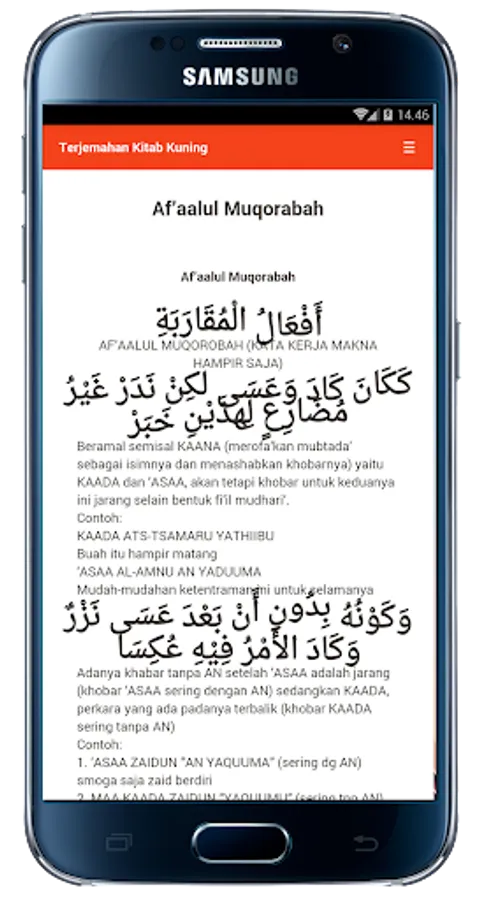 SAMSUNG
14.46
Terjemahan Kitab Kuning
Af'aalul Muqorabah
Af'aalul Muqorabah
أَفْعَالُ الْمُقَارَبَةِ
AF'AALUL MUQOROBAH (KATA KERJA MAKNA
HAMPIR SAJA)
كَكَانَ كَادَ وَعَسَى لكِنْ نَدَرْ غَيْرُ
مُضَارِعٍ لِهذَيْنِ خَبَرْ
Beramal semisal KAANA (merofa'kan mubtada'
sebagai isimnya dan menashabkan khobarnya) yaitu
KAADA dan 'ASAA, akan tetapi khobar untuk keduanya
ini jarang selain bentuk fi'il mudhari'.
Contoh:
KAADA ATS-TSAMARU YATHIIBU
Buah itu hampir matang
'ASAA AL-AMNU AN YADUUMA
Mudah-mudahan ketentraman ini untuk selamanya
وَكَوْنُهُ بِدُونِ أَنْ بَعْدَ عَسَى نَزْرٌ
وَكَادَ الأَمْرُ فِيْهِ عُكِسَا
Adanya khabar tanpa AN setelah 'ASAA adalah jarang
(khobar 'ASAA sering dengan AN) sedangkan KAADA,
perkara yang ada padanya terbalik (khobar KAADA
sering tanpa AN)
Contoh:
1. 'ASAA ZAIDUN "AN YAQUUMA" (sering dg AN)
smoga saja zaid berdiri
2. MAA KAADA ZAIDUN "YAQUUMU" (sering tnp AN)